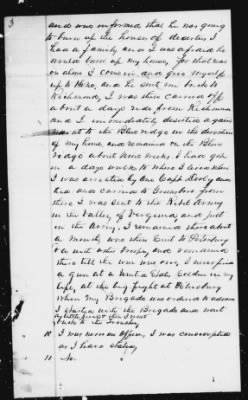 and was informed that he was going
to burn up the houses of deserters I
had a family and I was afraid he
would burn up my house, for that was
on alone I come in and give myself
up to Hoke, and he sent me back to
Richmond, I was then carried off
about a days ride from Richmond
and I immediately deserted again
went to the Blue ridge in the direction
of my home and remained on the Blue
ridge about nine weeks, I had got
in a days work to where I lived when
I was arrested by one Capt
and carried to Greensboro from
there I was sent to the Rebel Army
in the valley of Virginia and just
in the Army, I remained there about
a month, was then sent to Petersburg
& with other troops, and remained
there till the war was over, I never fired
a gun at a United States Soldier in my
life, at the big fight at Petersburg
when my Brigade was ordered to advance
I started with the Brigade and went
a little piece & then I went
back to the
10 I was never an officer, I was conscripted
as I have stated,
11 No.